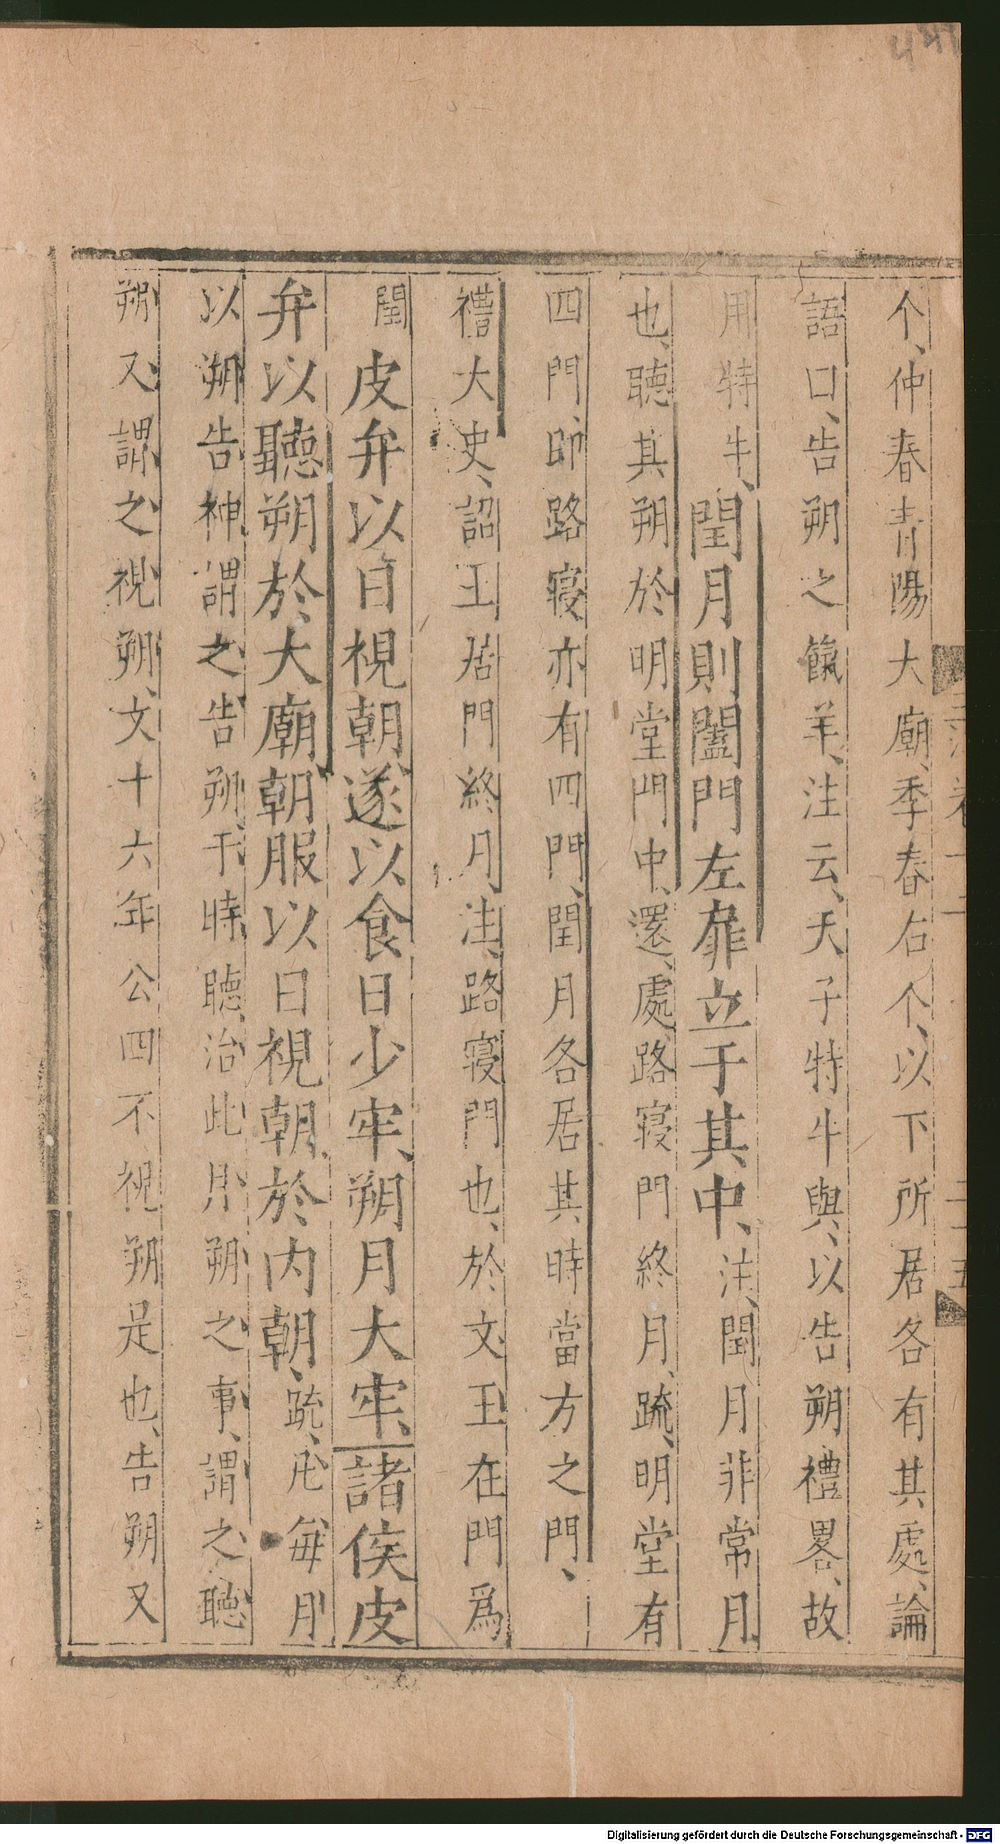 个、仲春青陽大廟、季春右个、以下所居各有其處、論
語口、告朔之餼羊、注云、天子特牛與、以告朔禮畧、故
用特牛、閏月則闔門左扉立于其中、注、閏月非常月
也、聽其朔於明堂門中、還、處路寢門終月、䟽、明堂有
四門、即路寢亦有四門、閏月各居其時當方之門、
禮大史、詔王居門終月、注、路寢門也、於文王在門爲
閏皮弁以日視朝、遂以食日少牢、朔月大牢、諸侯皮
弁以聽朔於大廟、朝服以日視朝、於內朝、䟽、凡每月
以朔告神、謂之告朔、于時聽治此月朔之事、謂之聽
朔、又謂之視朔、文十六年公四不視朔是也、告朔又
Digitalisierung gefördert durch die Deutsche Forschungsgemeinschaft - DFG